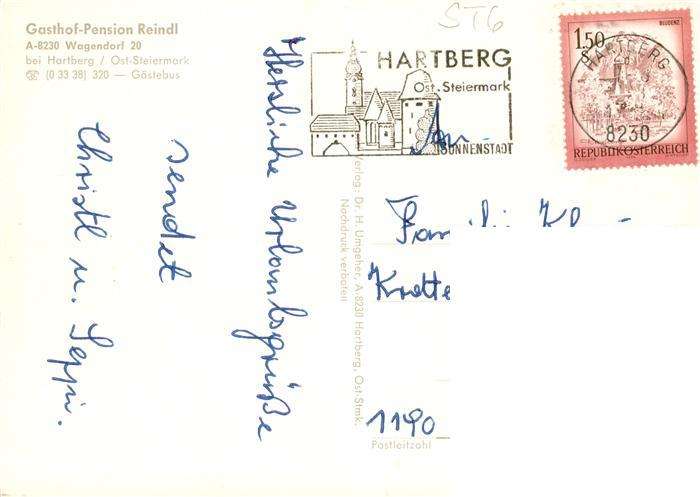 Gasthof-Pension Reindl
A-8230 Wagendorf 20
bei Hartberg / Ost-Steiermark
☎ (0 33 38) 320 — Gästebus
ST6
HARTBERG
Ost-Steiermark
SONNENSTADT
BLUDENZ
1.50
HARTBERG
8230
REPUBLIK ÖSTERREICH
Herzliche Urlaubsgrüße
sendet
Christl u. Seppi.
Verlag: Dr. H. Umgeher, A-8230 Hartberg, Ost-Stmk.
Nachdruck verboten
An
1190
Postleitzahl